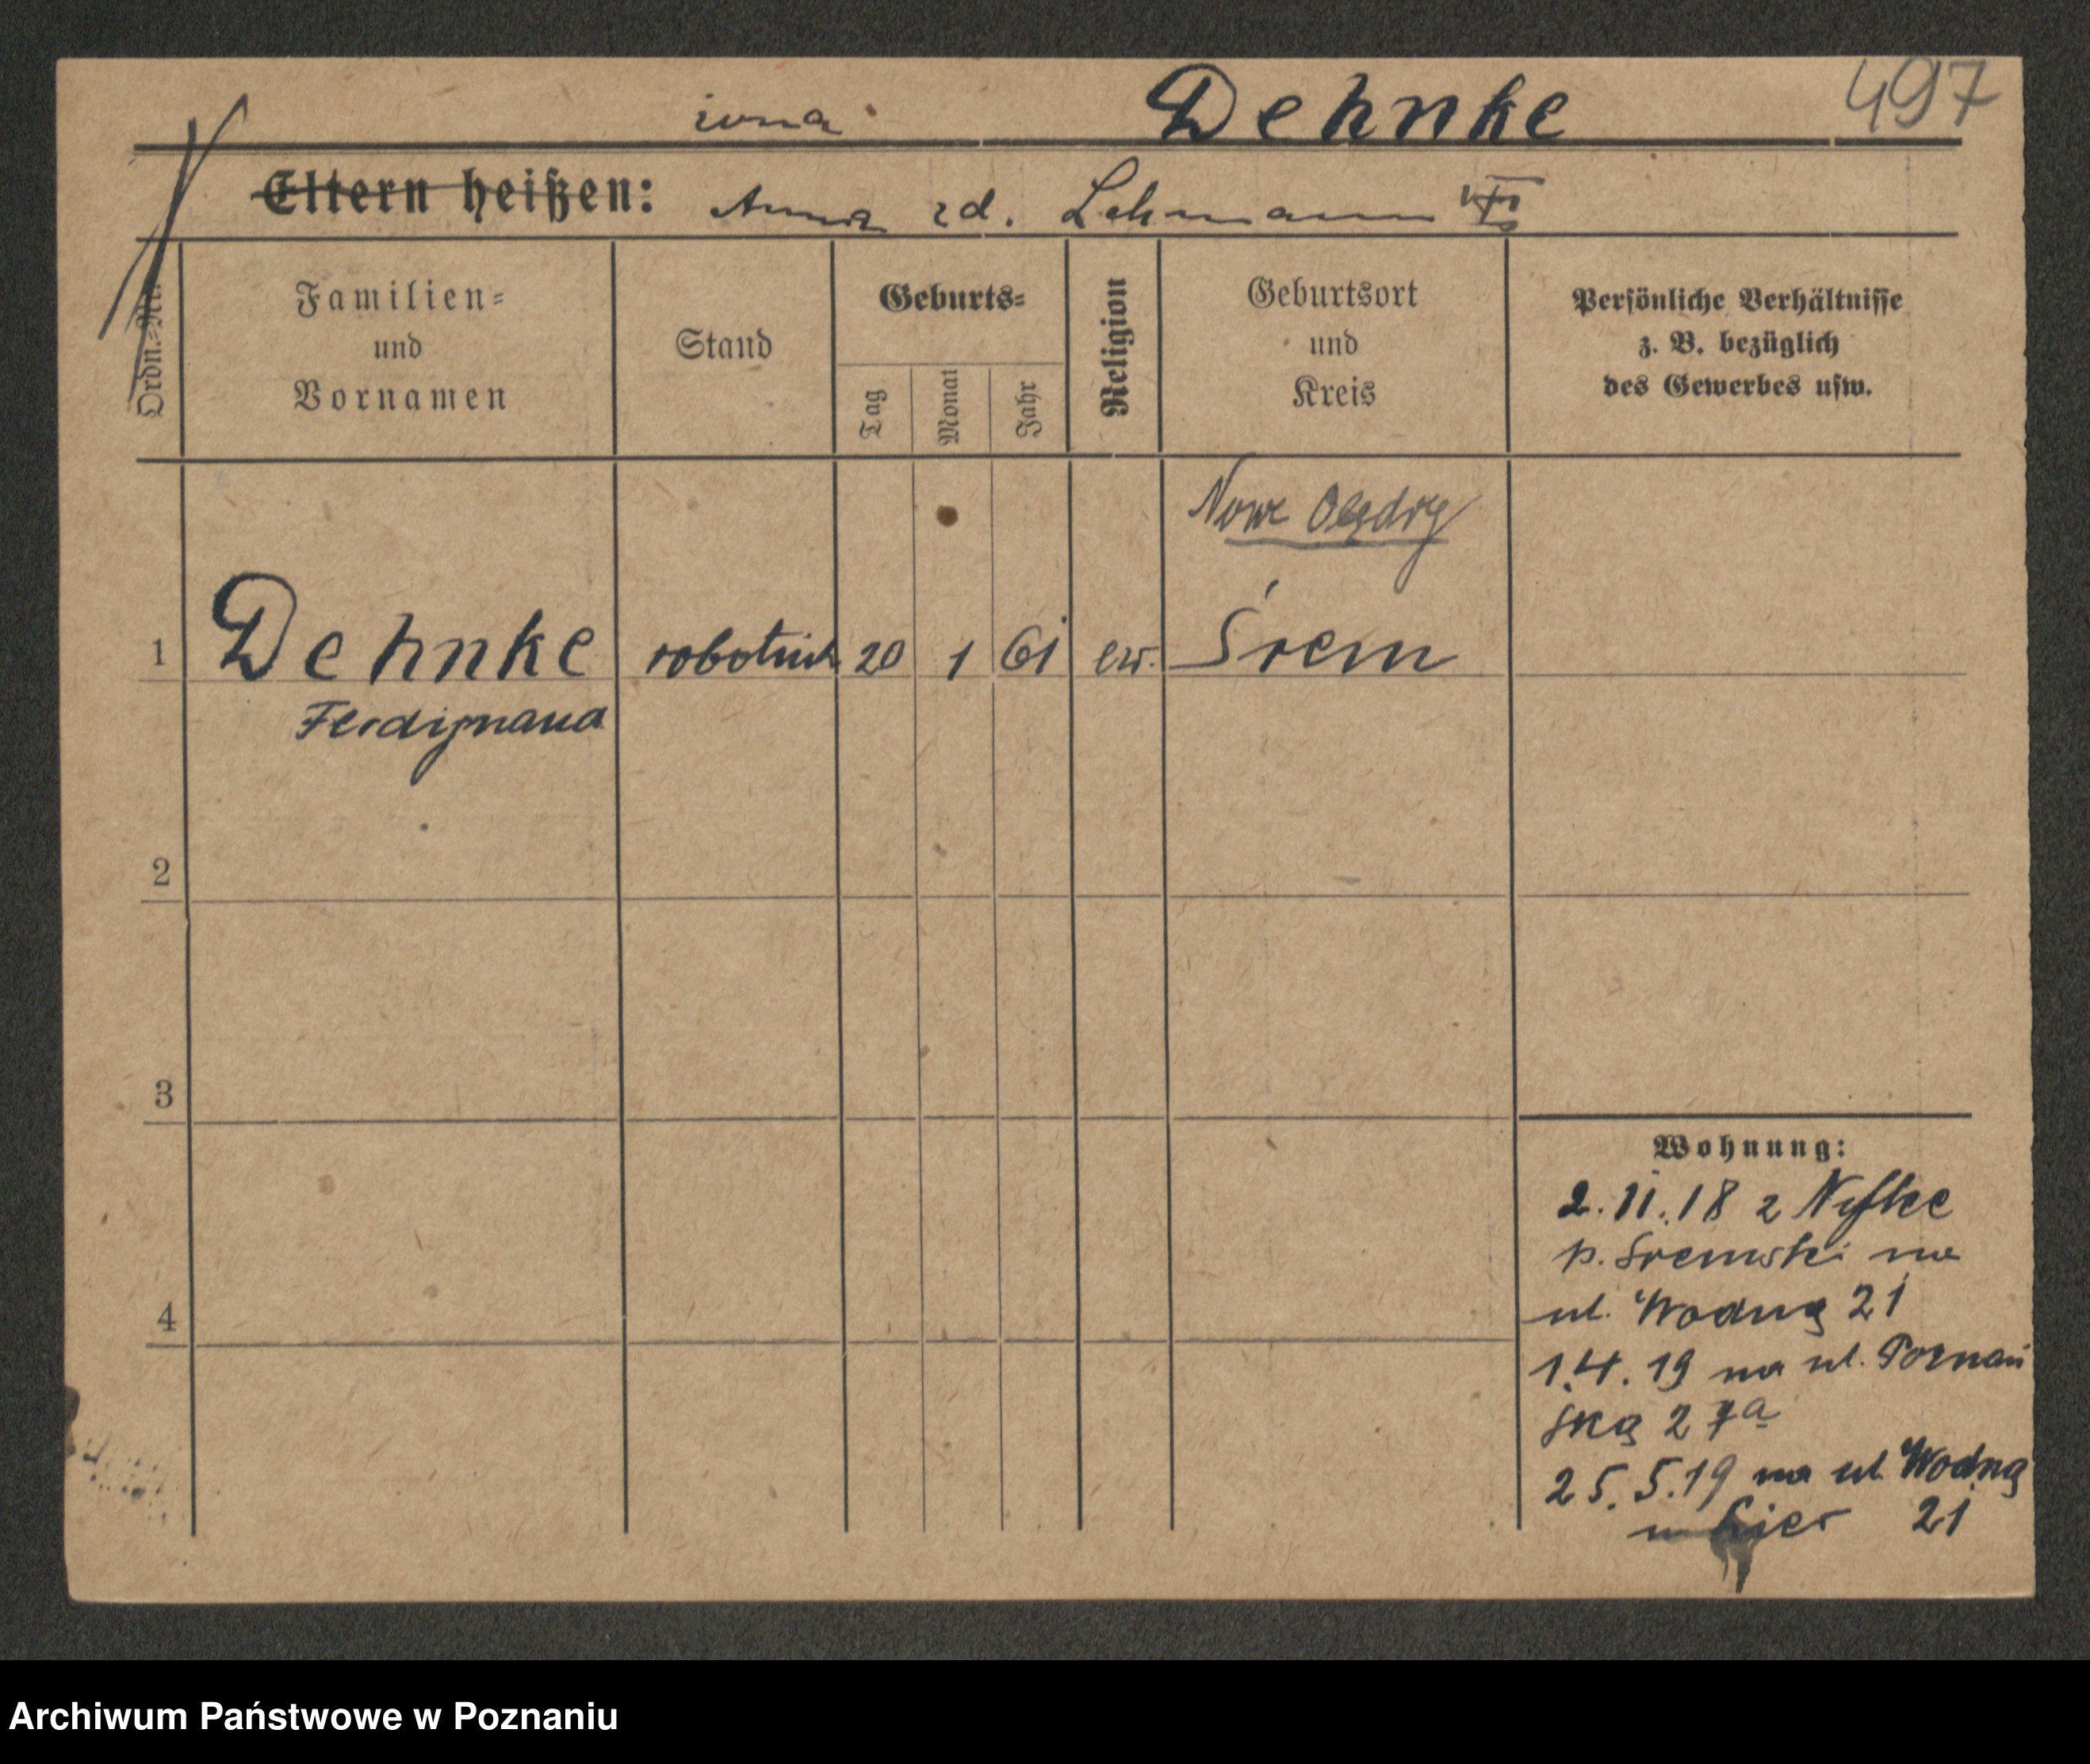 żona Dehnke 497
Eltern heißen: Anna zd. Lehmann
Ordn.-Nr.
Familien-
und
Vornamen
Stand
Geburts-
Tag
Monat
Jahr
Religion
Geburtsort
und
Kreis
Persönliche Verhältnisse
z. B. bezüglich
des Gewerbes usw.
Nowe
1 Dehnke robotnik 20 1 61 ew. Śrem
Ferdynand
2
3
4
Wohnung:
2.11.18 z
p. Śremski na
ul. Wodną 21
1.4.19 na ul. Poznań
ską 27a
25.5.19 na ul. Wodną
21
Archiwum Państwowe w Poznaniu